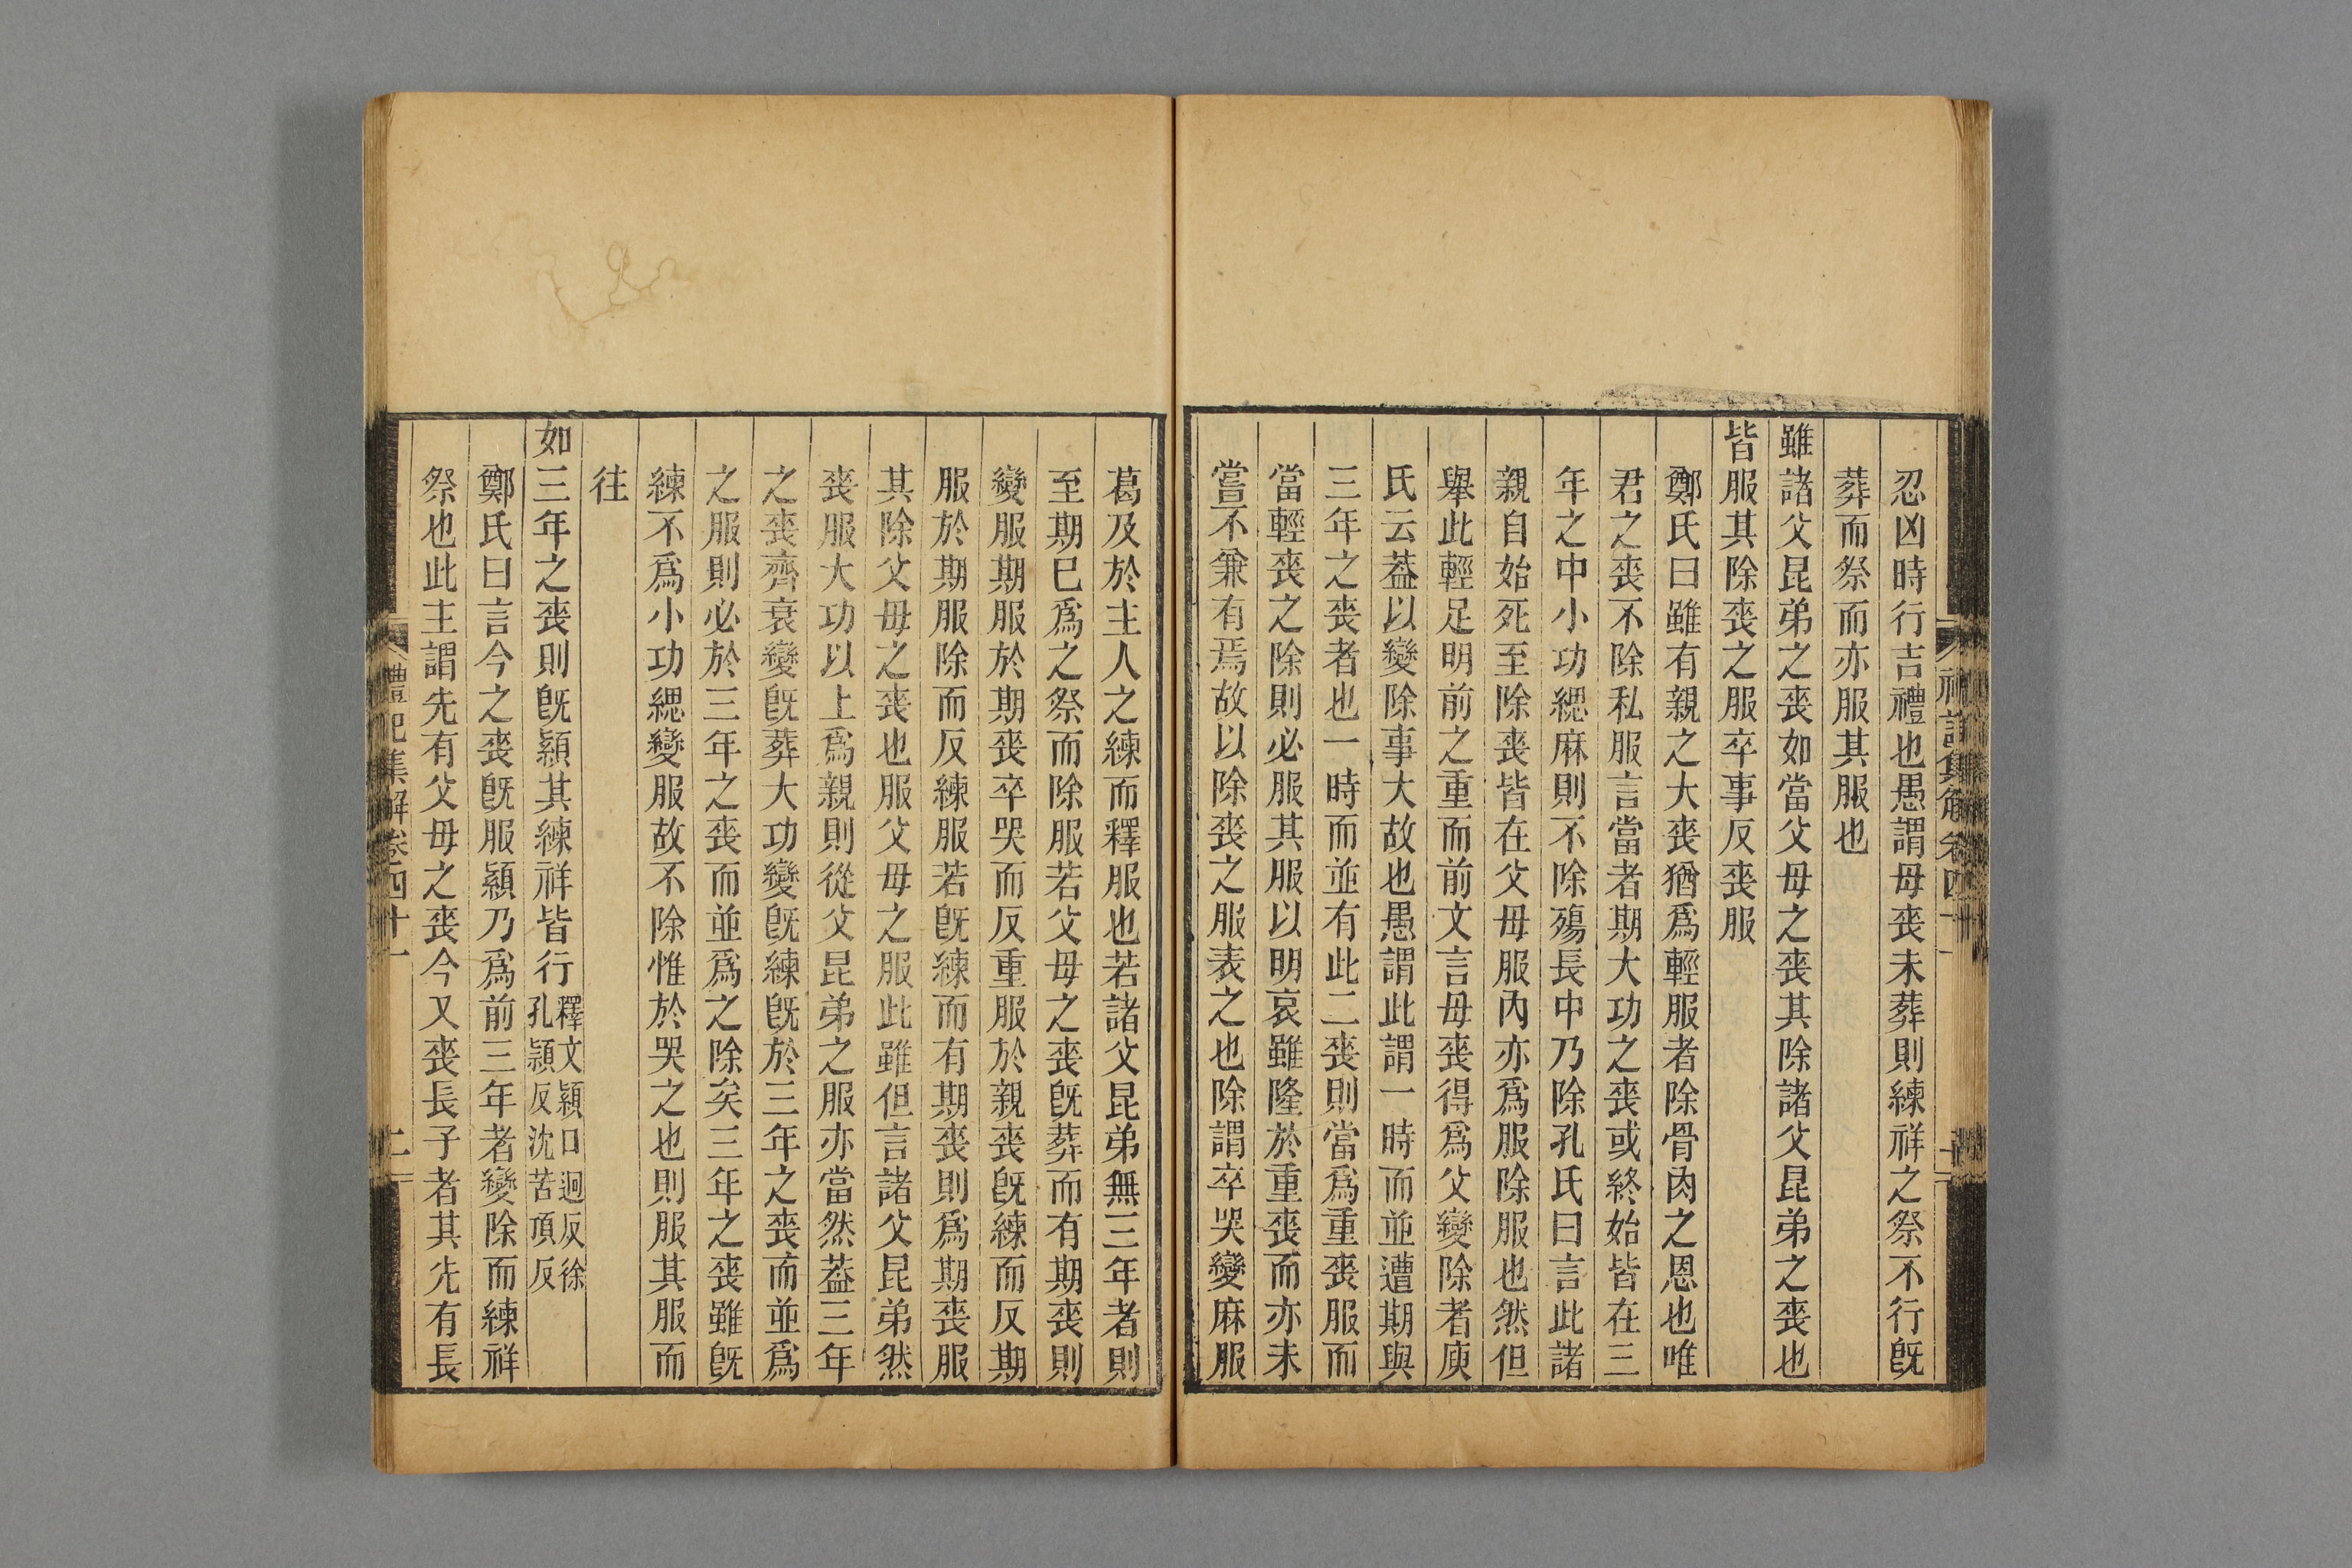 忍凶時行吉禮也愚謂毋喪未葬則練祥之祭不行旣
葬而祭而亦服其服也
雖諸父昆弟之喪如當父毋之喪其除諸父昆弟之喪也
皆服其除喪之服卒事反喪服
鄭氏曰雖有親之大喪猶爲輕服者除骨肉之恩也唯
君之喪不除私服言當者期大功之喪或終始皆在三
年之中小功緦麻則不除殤長中乃除孔氏曰言此諸
親自始死至除喪皆在父毋服內亦爲服除服也然但
舉此輕足明前之重而前文言毋喪得爲父變除者庾
氏云葢以變除事大故也愚謂此謂一時而並遭期與
三年之喪者也一時而並有此二喪則當爲重喪服而
當輕喪之除則必服其服以明哀雖隆於重喪而亦未
嘗不兼有焉故以除喪之服表之也除謂卒哭變麻服
葛及於主人之練而釋服也若諸父昆弟無三年者則
至期已爲之祭而除服若父毋之喪旣葬而有期喪則
變服期服於期喪卒哭而反重服於親喪旣練而反期
服於期服除而反練服若旣練而有期喪則爲期喪服
其除父毋之喪也服父毋之服此雖但言諸父昆弟然
喪服大功以上爲親則從父昆弟之服亦當然葢三年
之喪齊衰變旣葬大功變旣練旣於三年之喪而並爲
之服則必於三年之喪而並爲之除矣三年之喪雖旣
練不爲小功緦變服故不除惟於哭之也則服其服而
往
如三年之喪則旣顈其練祥皆行釋文顈口迥反徐孔潁反沈苦頂反
鄭氏曰言今之喪旣服顈乃爲前三年者變除而練祥
祭也此主謂先有父毋之喪今又喪長子者其先有長
禮記集解卷四十一
二